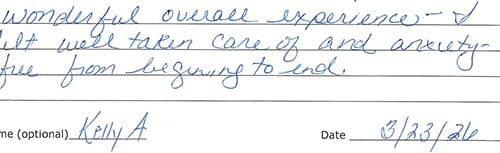 wonderful overall experience - I
felt well taken care of and anxiety-
free from begining to end.
me (optional) Kelly A Date 3/23/26